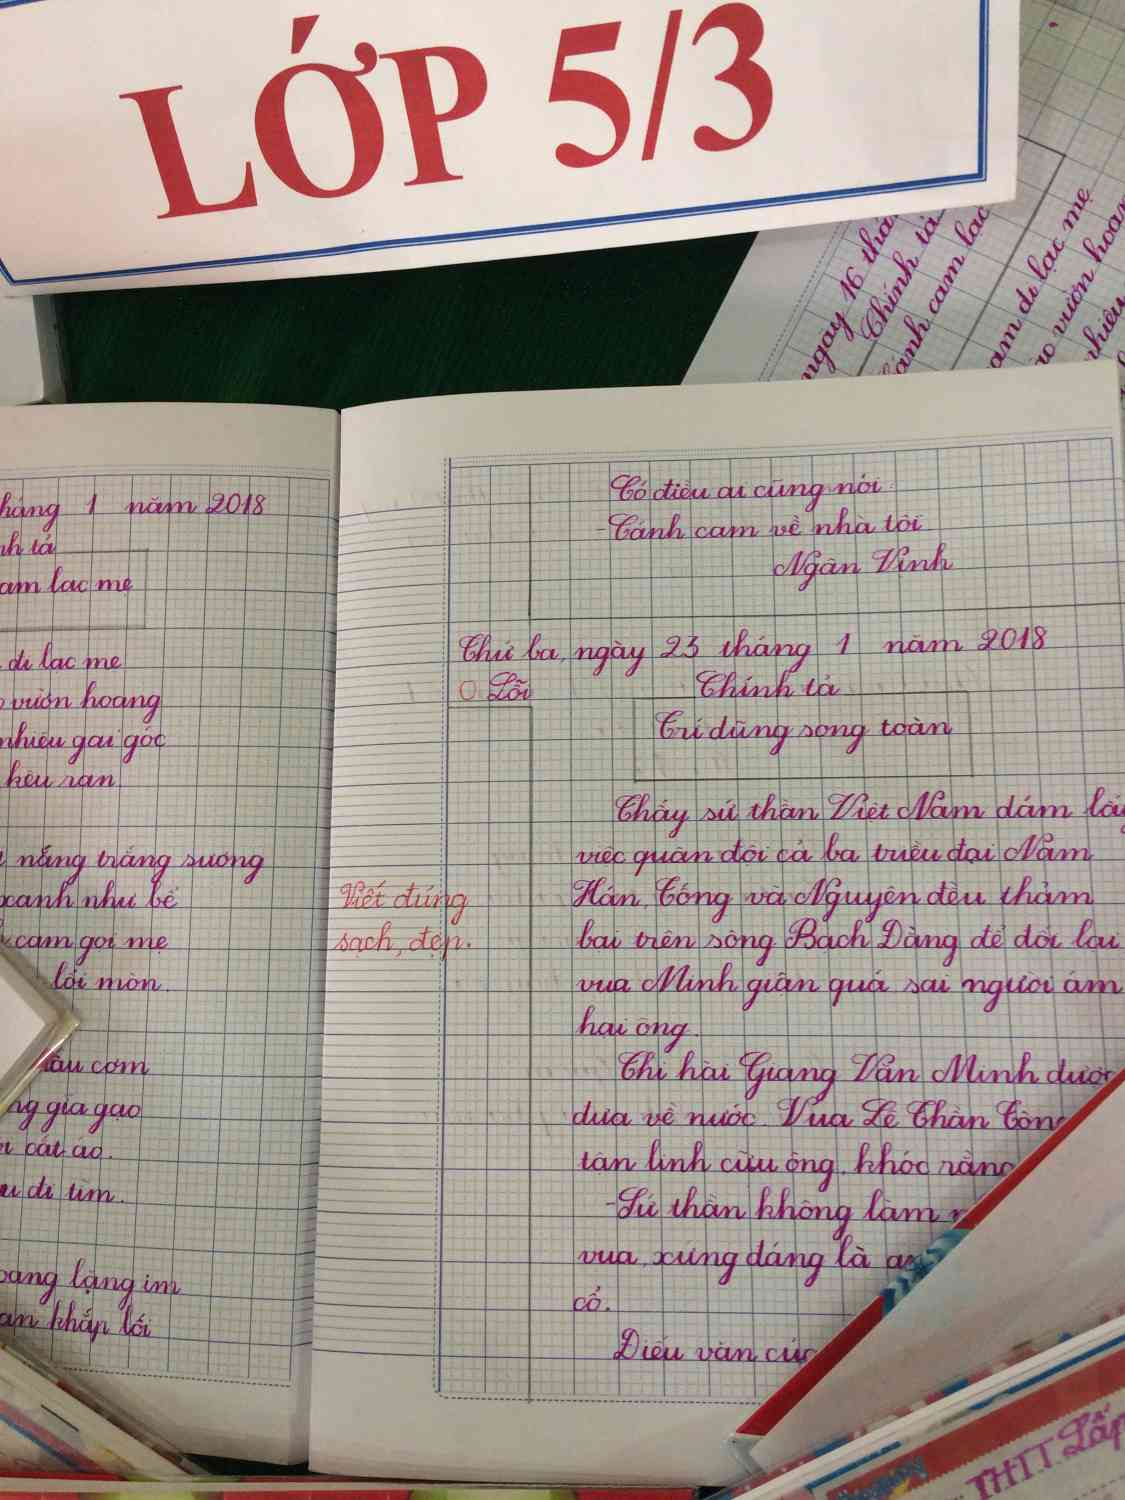 LỚP 5/3
ngày 16
Chính tả
cam lạc
đi lạc mẹ
vườn hoan
1 năm 2018
tả
lạc mẹ
đi lạc mẹ
vườn hoang
nhiêu gai góc
kêu ran
nắng trắng sương
xanh như bể
cam gọi mẹ
lối mòn.
cơm
giã gạo
cắt áo.
đi tìm.
lặng im
khắp lối
Có điều ai cũng nói:
-Cánh cam về nhà tôi
Ngân Vịnh
Thứ ba, ngày 23 tháng 1 năm 2018
0 Lỗi
Chính tả
Trí dũng song toàn
Thấy sứ thần Việt Nam dám lấy
việc quân đội cả ba triều đại Nam
Hán, Tống và Nguyên đều thảm
bại trên sông Bạch Đằng để đối lại
vua Minh giận quá sai người ám
hại ông.
Thi hài Giang Văn Minh được
đưa về nước. Vua Lê Thần Tông
tận linh cữu ông, khóc rằng
-Sứ thần không làm
vua, xứng đáng là
cổ.
Điếu văn của
Viết đúng
sạch, đẹp.
THTT Lấp